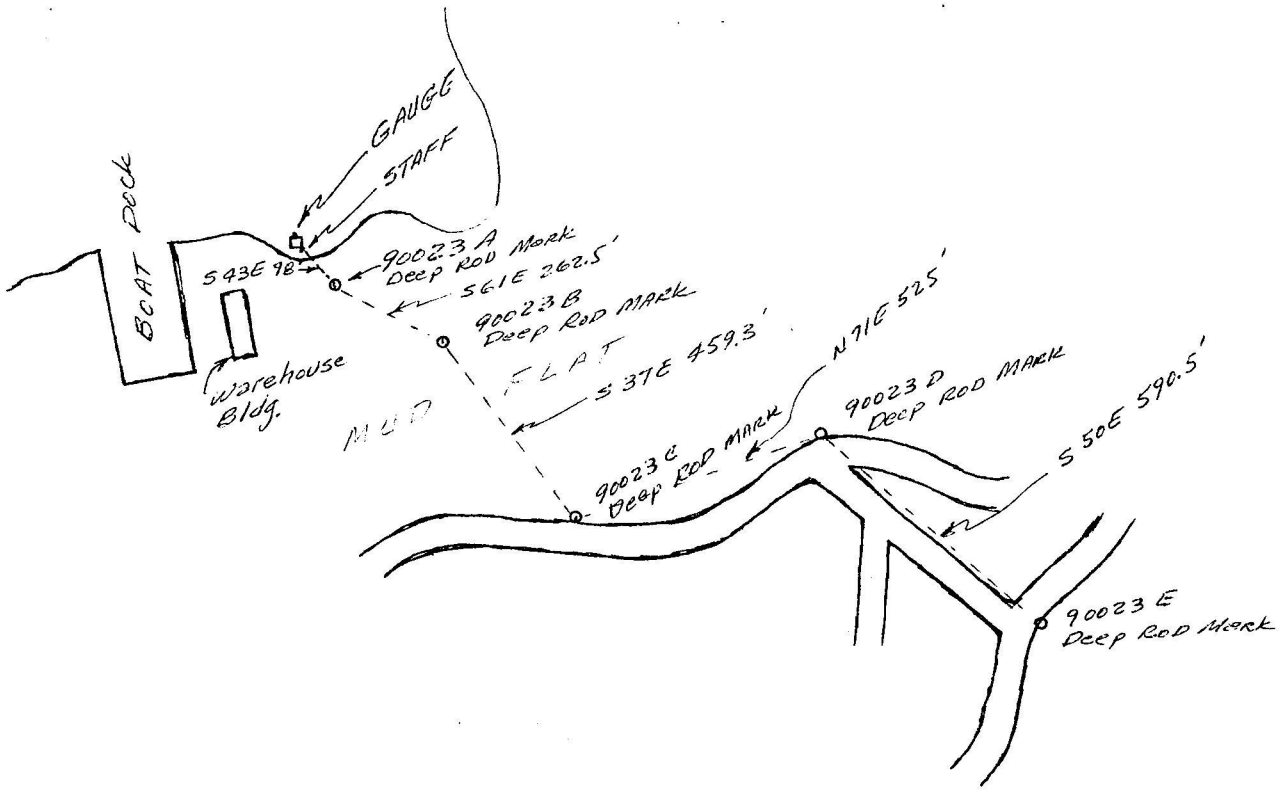 GAUGE
STAFF
BOAT DOCK
S 43E 98
90023 A
Deep Rod Mork
S61E 262.5'
90023 B
Deep Rod Mark
Warehouse
Bldg.
MUD FLAT
S 37E 459.3'
N 71E 525'
90023 C
Deep Rod Mark
90023 D
Deep Rod Mark
S 50E 590.5'
90023 E
Deep Rod Mark